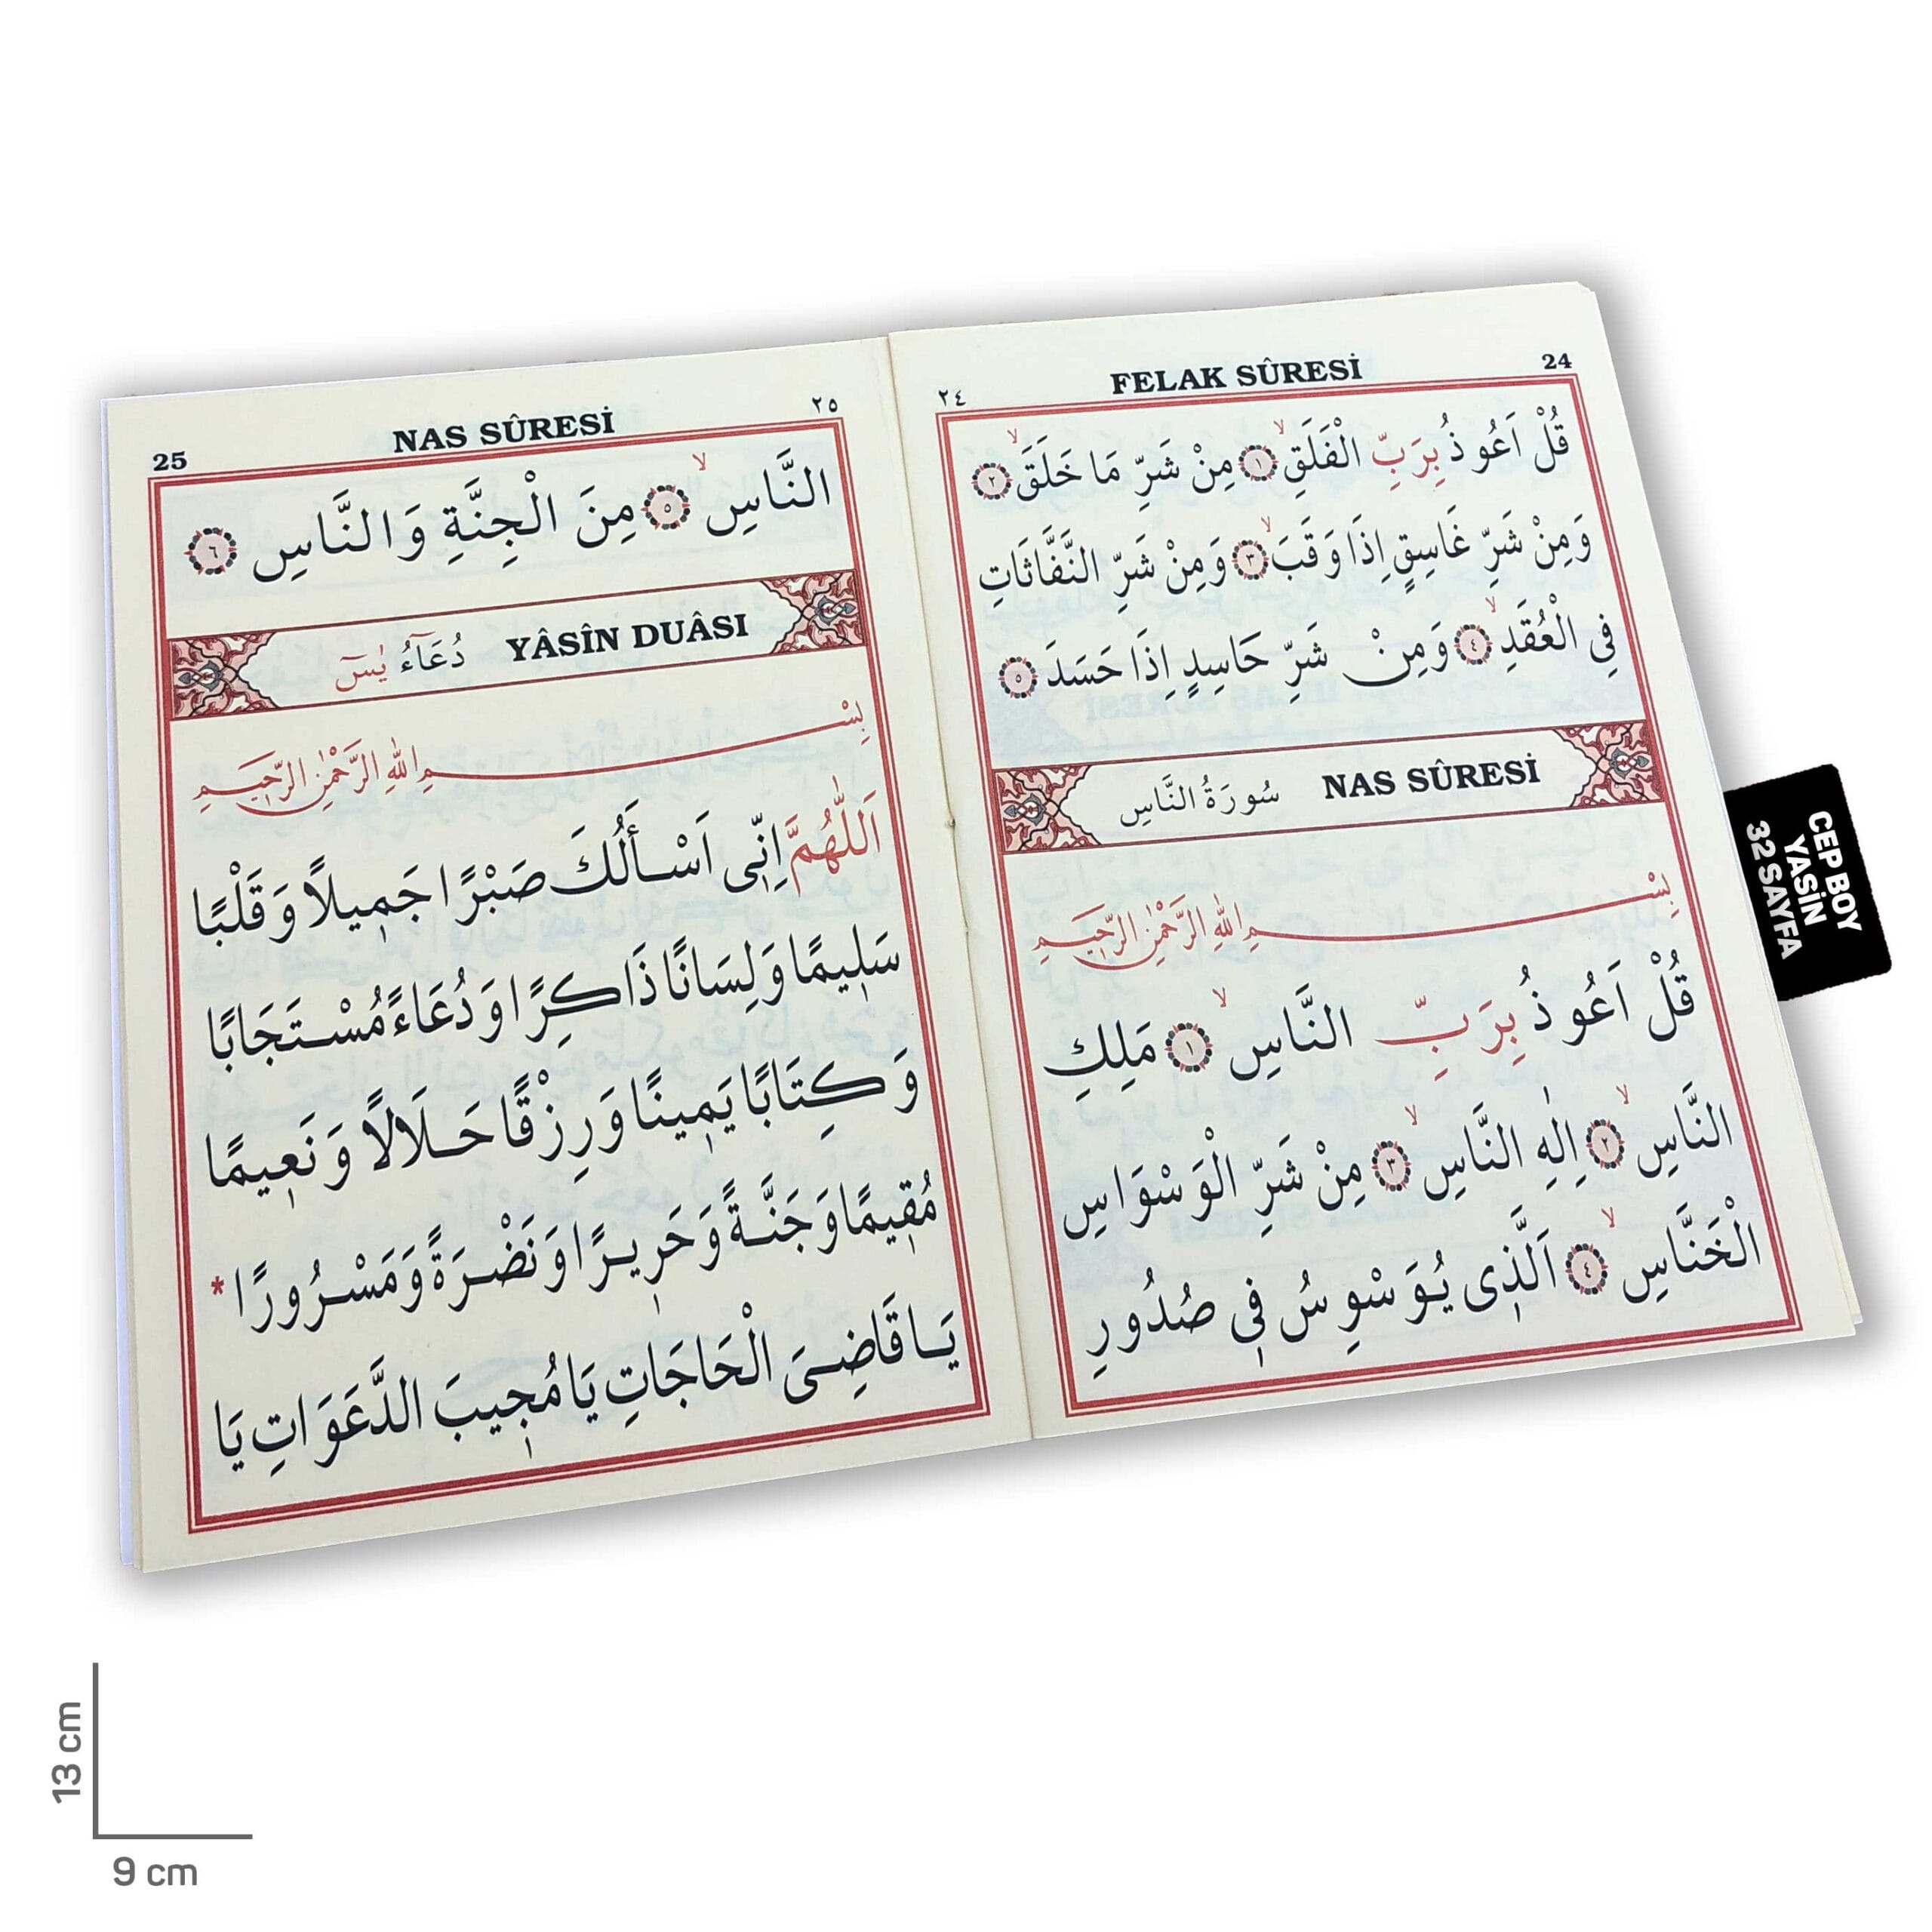 ٢٤ FELAK SÛRESİ 24
قُلْ اَعُوذُ بِرَبِّ الْفَلَقِۙ ﴿١﴾ مِنْ شَرِّ مَا خَلَقَۙ ﴿٢﴾
وَمِنْ شَرِّ غَاسِقٍ اِذَا وَقَبَۙ ﴿٣﴾ وَمِنْ شَرِّ النَّفَّاثَاتِ
فِي الْعُقَدِۙ ﴿٤﴾ وَمِنْ شَرِّ حَاسِدٍ اِذَا حَسَدَ ﴿٥﴾
سُورَةُ النَّاسِ NAS SÛRESİ
بِسْمِ اللّٰهِ الرَّحْمٰنِ الرَّحٖيمِ
قُلْ اَعُوذُ بِرَبِّ النَّاسِۙ ﴿١﴾ مَلِكِ
النَّاسِۙ ﴿٢﴾ اِلٰهِ النَّاسِۙ ﴿٣﴾ مِنْ شَرِّ الْوَسْوَاسِ
الْخَنَّاسِۙ ﴿٤﴾ اَلَّذٖى يُوَسْوِسُ فٖى صُدُورِ
25 NAS SÛRESİ ٢٥
النَّاسِۙ ﴿٥﴾ مِنَ الْجِنَّةِ وَالنَّاسِ ﴿٦﴾
دُعَآءُ يٰسٓ YÂSÎN DUÂSI
بِسْمِ اللّٰهِ الرَّحْمٰنِ الرَّحٖيمِ
اَللّٰهُمَّ اِنّٖى اَسْأَلُكَ صَبْرًا جَمٖيلًا وَقَلْبًا
سَلٖيمًا وَلِسَانًا ذَاكِرًا وَدُعَاءً مُسْتَجَابًا
وَكِتَابًا يَمٖينًا وَرِزْقًا حَلَالًا وَنَعٖيمًا
مُقٖيمًا وَجَنَّةً وَحَرٖيرًا وَنَضْرَةً وَمَسْرُورًا *
يَا قَاضِىَ الْحَاجَاتِ يَا مُجٖيبَ الدَّعَوَاتِ يَا
CEP BOY
YASİN
32 SAYFA
13 cm
9 cm